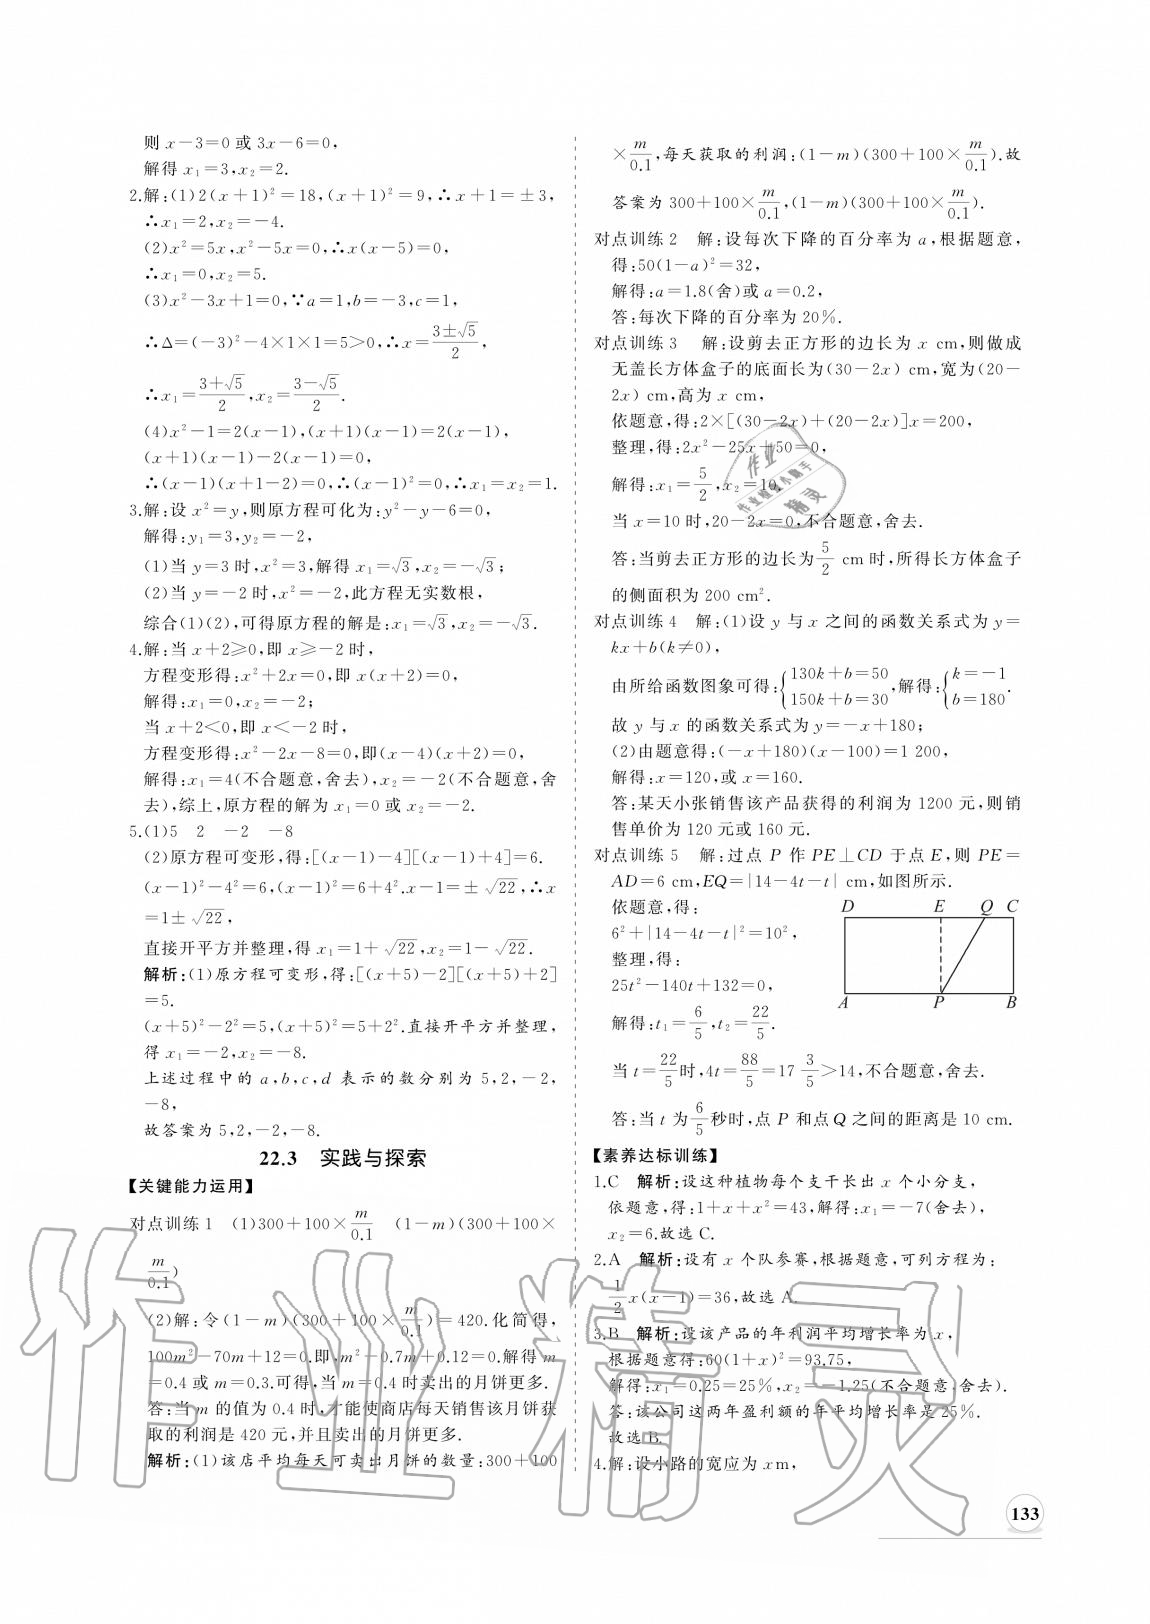 则 x－3＝0 或 3x－6＝0，
解得 x₁＝3，x₂＝2.
2.解：(1)2(x＋1)²＝18，(x＋1)²＝9，∴x＋1＝±3，
∴x₁＝2，x₂＝－4.
(2)x²＝5x，x²－5x＝0，∴x(x－5)＝0，
∴x₁＝0，x₂＝5.
(3)x²－3x＋1＝0，∵a＝1，b＝－3，c＝1，
∴Δ＝(－3)²－4×1×1＝5＞0，∴x＝(3±√5)/2，
∴x₁＝(3＋√5)/2，x₂＝(3－√5)/2.
(4)x²－1＝2(x－1)，(x＋1)(x－1)＝2(x－1)，
(x＋1)(x－1)－2(x－1)＝0，
∴(x－1)(x＋1－2)＝0，∴(x－1)²＝0，∴x₁＝x₂＝1.
3.解：设 x²＝y，则原方程可化为：y²－y－6＝0，
解得：y₁＝3，y₂＝－2，
(1)当 y＝3 时，x²＝3，解得 x₁＝√3，x₂＝－√3；
(2)当 y＝－2 时，x²＝－2，此方程无实数根，
综合(1)(2)，可得原方程的解是：x₁＝√3，x₂＝－√3.
4.解：当 x＋2≥0，即 x≥－2 时，
方程变形得：x²＋2x＝0，即 x(x＋2)＝0，
解得：x₁＝0，x₂＝－2；
当 x＋2＜0，即 x＜－2 时，
方程变形得：x²－2x－8＝0，即(x－4)(x＋2)＝0，
解得：x₁＝4(不合题意，舍去)，x₂＝－2(不合题意，舍
去)，综上，原方程的解为 x₁＝0 或 x₂＝－2.
5.(1)5　2　－2　－8
(2)原方程可变形，得：[(x－1)－4][(x－1)＋4]＝6.
(x－1)²－4²＝6，(x－1)²＝6＋4².x－1＝±√22，∴x
＝1±√22，
直接开平方并整理，得 x₁＝1＋√22，x₂＝1－√22.
解析：(1)原方程可变形，得：[(x＋5)－2][(x＋5)＋2]
＝5.
(x＋5)²－2²＝5，(x＋5)²＝5＋2².直接开平方并整理，
得 x₁＝－2，x₂＝－8.
上述过程中的 a，b，c，d 表示的数分别为 5，2，－2，
－8，
故答案为 5，2，－2，－8.
22.3　实践与探索
【关键能力运用】
对点训练 1　(1)300＋100×m/0.1　(1－m)(300＋100×
m/0.1)
(2)解：令(1－m)(300＋100×m/0.1)＝420.化简得，
100m²－70m＋12＝0.即，m²－0.7m＋0.12＝0.解得 m
＝0.4 或 m＝0.3.可得，当 m＝0.4 时卖出的月饼更多.
答：当 m 的值为 0.4 时，才能使商店每天销售该月饼获
取的利润是 420 元，并且卖出的月饼更多.
解析：(1)该店平均每天可卖出月饼的数量：300＋100
×m/0.1，每天获取的利润：(1－m)(300＋100×m/0.1).故
答案为 300＋100×m/0.1，(1－m)(300＋100×m/0.1).
对点训练 2　解：设每次下降的百分率为 a，根据题意，
得：50(1－a)²＝32，
解得：a＝1.8(舍)或 a＝0.2，
答：每次下降的百分率为 20%.
对点训练 3　解：设剪去正方形的边长为 x cm，则做成
无盖长方体盒子的底面长为(30－2x) cm，宽为(20－
2x) cm，高为 x cm，
依题意，得：2×[(30－2x)＋(20－2x)]x＝200，
整理，得：2x²－25x＋50＝0，
解得：x₁＝5/2，x₂＝10.
当 x＝10 时，20－2x＝0，不合题意，舍去.
答：当剪去正方形的边长为5/2 cm 时，所得长方体盒子
的侧面积为 200 cm².
对点训练 4　解：(1)设 y 与 x 之间的函数关系式为 y＝
kx＋b(k≠0)，
由所给函数图象可得：{130k＋b＝50 150k＋b＝30，解得：{k＝－1 b＝180.
故 y 与 x 的函数关系式为 y＝－x＋180；
(2)由题意得：(－x＋180)(x－100)＝1 200，
解得：x＝120，或 x＝160.
答：某天小张销售该产品获得的利润为 1200 元，则销
售单价为 120 元或 160 元.
对点训练 5　解：过点 P 作 PE⊥CD 于点 E，则 PE＝
AD＝6 cm，EQ＝|14－4t－t| cm，如图所示.
依题意，得：
6²＋|14－4t－t|²＝10²，
整理，得：
25t²－140t＋132＝0，
解得：t₁＝6/5，t₂＝22/5.
D E Q C
A P B
当 t＝22/5时，4t＝88/5＝17 3/5＞14，不合题意，舍去.
答：当 t 为6/5秒时，点 P 和点 Q 之间的距离是 10 cm.
【素养达标训练】
1.C　解析：设这种植物每个支干长出 x 个小分支，
依题意，得：1＋x＋x²＝43，解得：x₁＝－7(舍去)，
x₂＝6.故选 C.
2.A　解析：设有 x 个队参赛，根据题意，可列方程为：
1/2x(x－1)＝36，故选 A.
3.B　解析：设该产品的年利润平均增长率为 x，
根据题意得：60(1＋x)²＝93.75，
解得：x₁＝0.25＝25%，x₂＝－1.25(不合题意，舍去).
答：该公司这两年盈利额的年平均增长率是 25%.
故选 B.
4.解：设小路的宽应为 xm，
133
作业精灵
作业
作业检查小助手
精灵